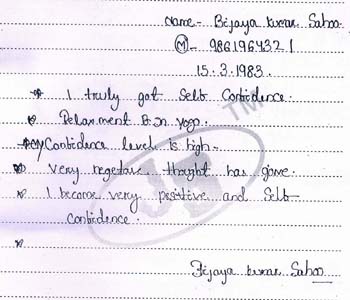 Name- Bijaya Kumar Sahoo.
(M)- 9861964321
15.3.1983.
* I truly got Selb Conbidence.
* Relaxment in yoga.
Conbidence level is high-
* Very negetive thought has gone.
* I become very positive and Selb-
conbidence.
Bijaya kumar Sahoo
TM